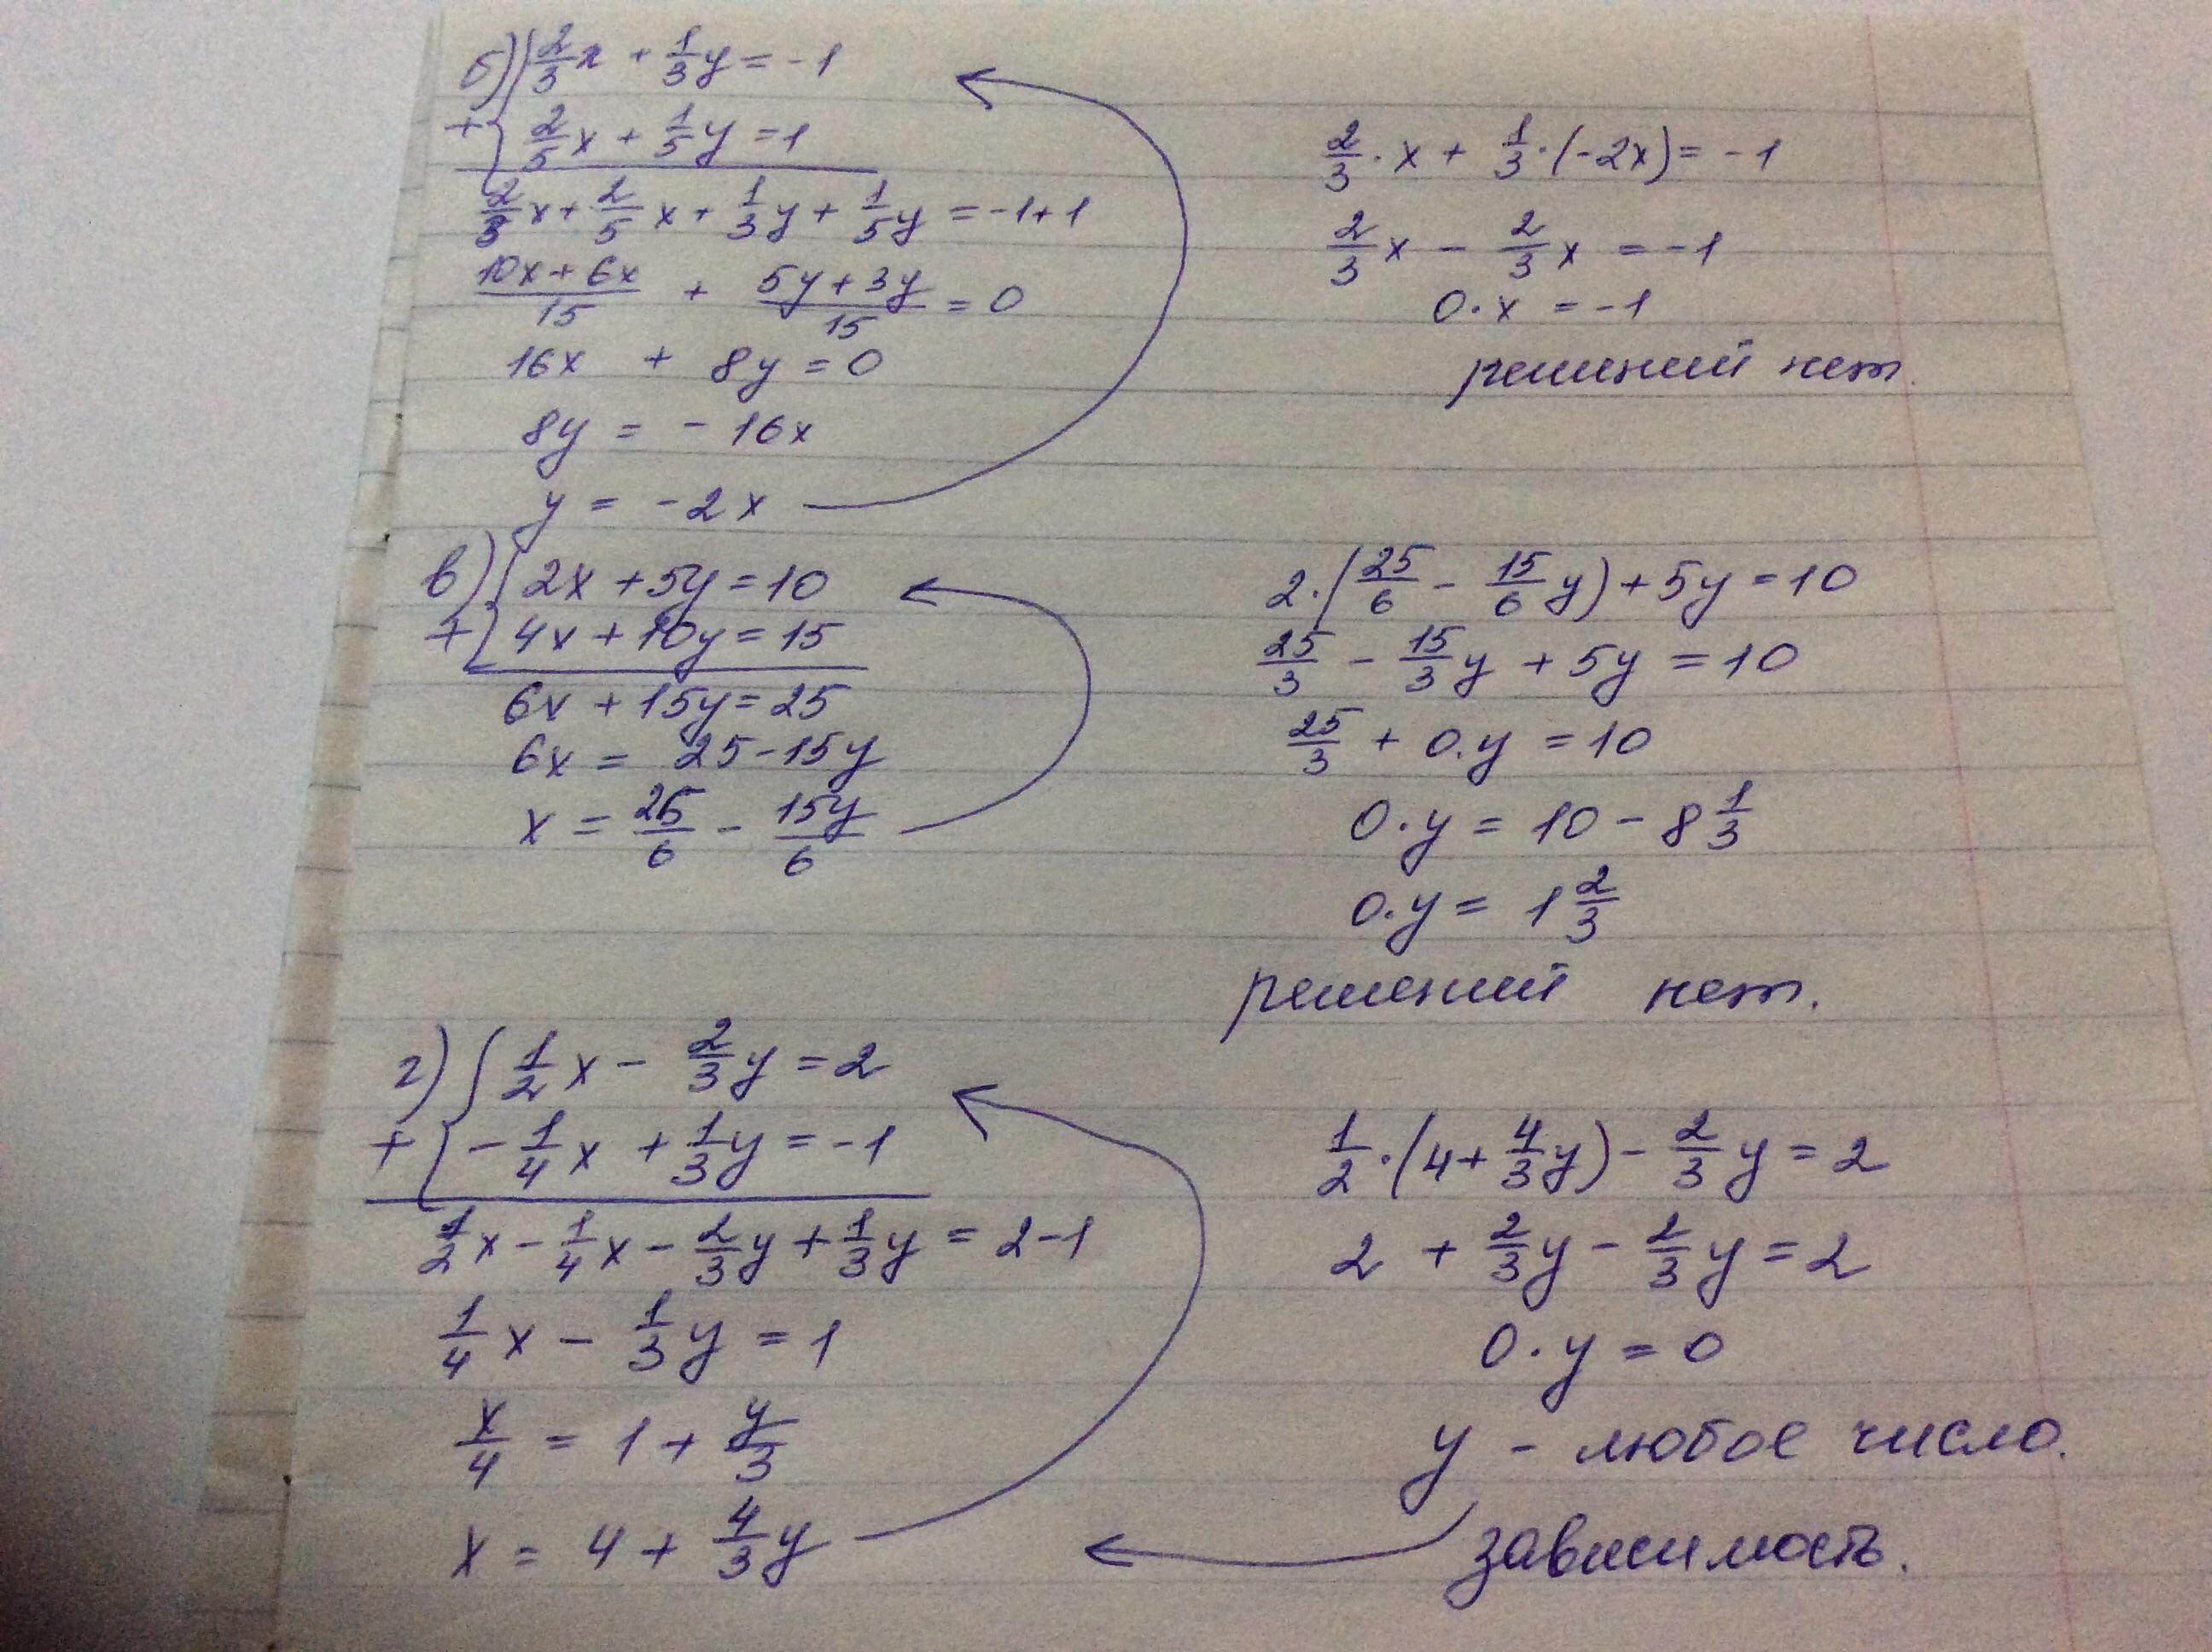 б) { 2/3 x + 1/3 y = -1
+ { 2/5 x + 1/5 y = 1
2/3 x + 2/5 x + 1/3 y + 1/5 y = -1+1
(10x + 6x)/15 + (5y + 3y)/15 = 0
16x + 8y = 0
8y = - 16x
y = -2x
2/3 · x + 1/3 · (-2x) = -1
2/3 x - 2/3 x = -1
0 · x = -1
решений нет.
в) { 2x + 5y = 10
+ { 4x + 10y = 15
6x + 15y = 25
6x = 25 - 15y
x = 25/6 - 15y/6
2 · (25/6 - 15/6 y) + 5y = 10
25/3 - 15/3 y + 5y = 10
25/3 + 0 · y = 10
0 · y = 10 - 8 1/3
0 · y = 1 2/3
решений нет.
г) { 1/2 x - 2/3 y = 2
+ { - 1/4 x + 1/3 y = -1
1/2 x - 1/4 x - 2/3 y + 1/3 y = 2-1
1/4 x - 1/3 y = 1
x/4 = 1 + y/3
x = 4 + 4/3 y
1/2 · (4 + 4/3 y) - 2/3 y = 2
2 + 2/3 y - 2/3 y = 2
0 · y = 0
y - любое число.
зависимость.